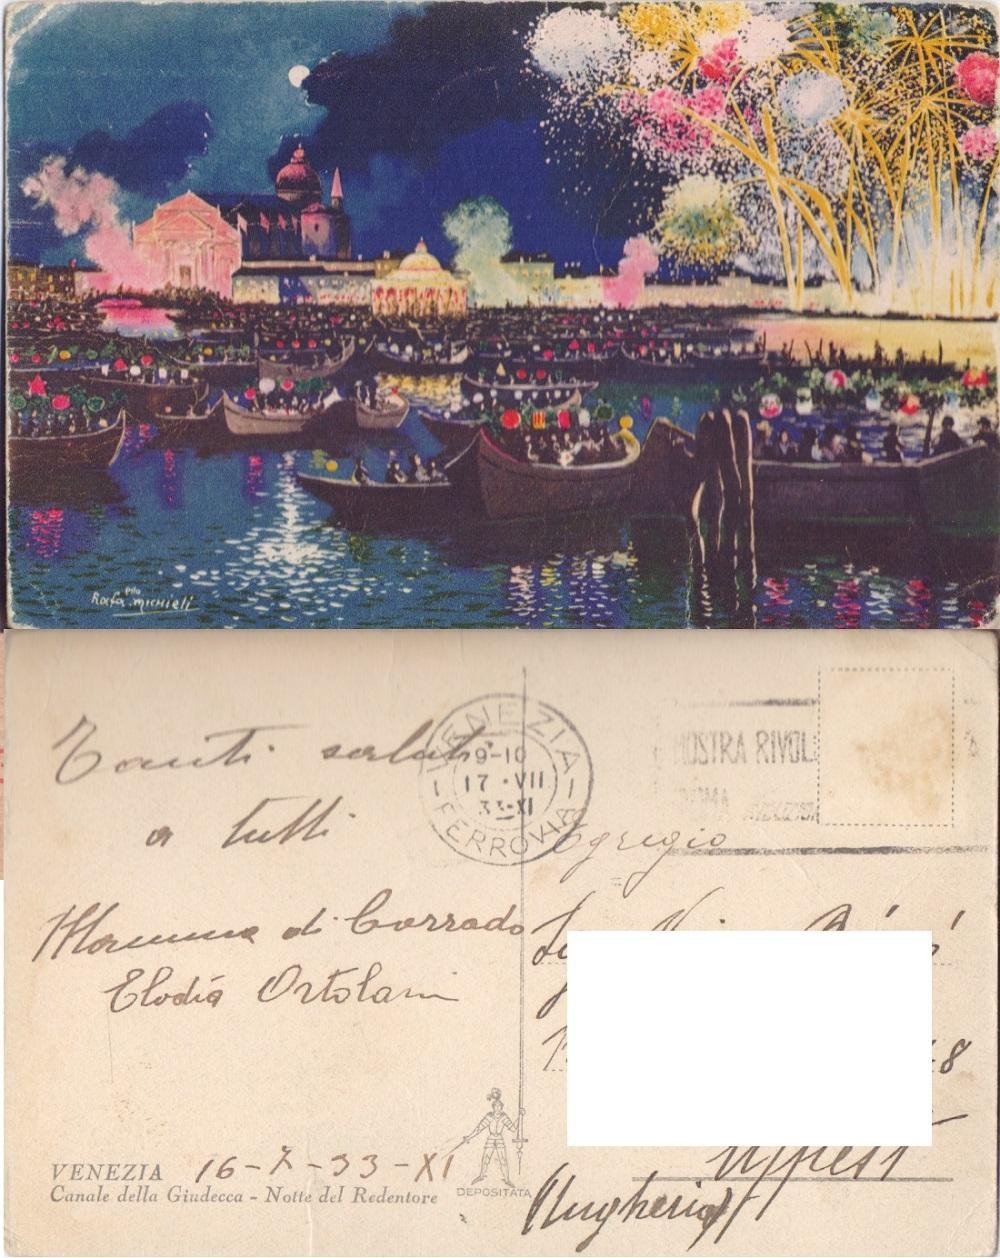 Rafa Michieli
Tanti saluti
a tutti
Mamma di Corrado
Elodia Ortolani
VENEZIA
9-10
17 · VII
33-XI
FERROVIA
MOSTRA RIVOL
ROMA
Egregio
8
Ujpest
(Ungheria)
VENEZIA 16-7-33-XI
Canale della Giudecca - Notte del Redentore
DEPOSITATA